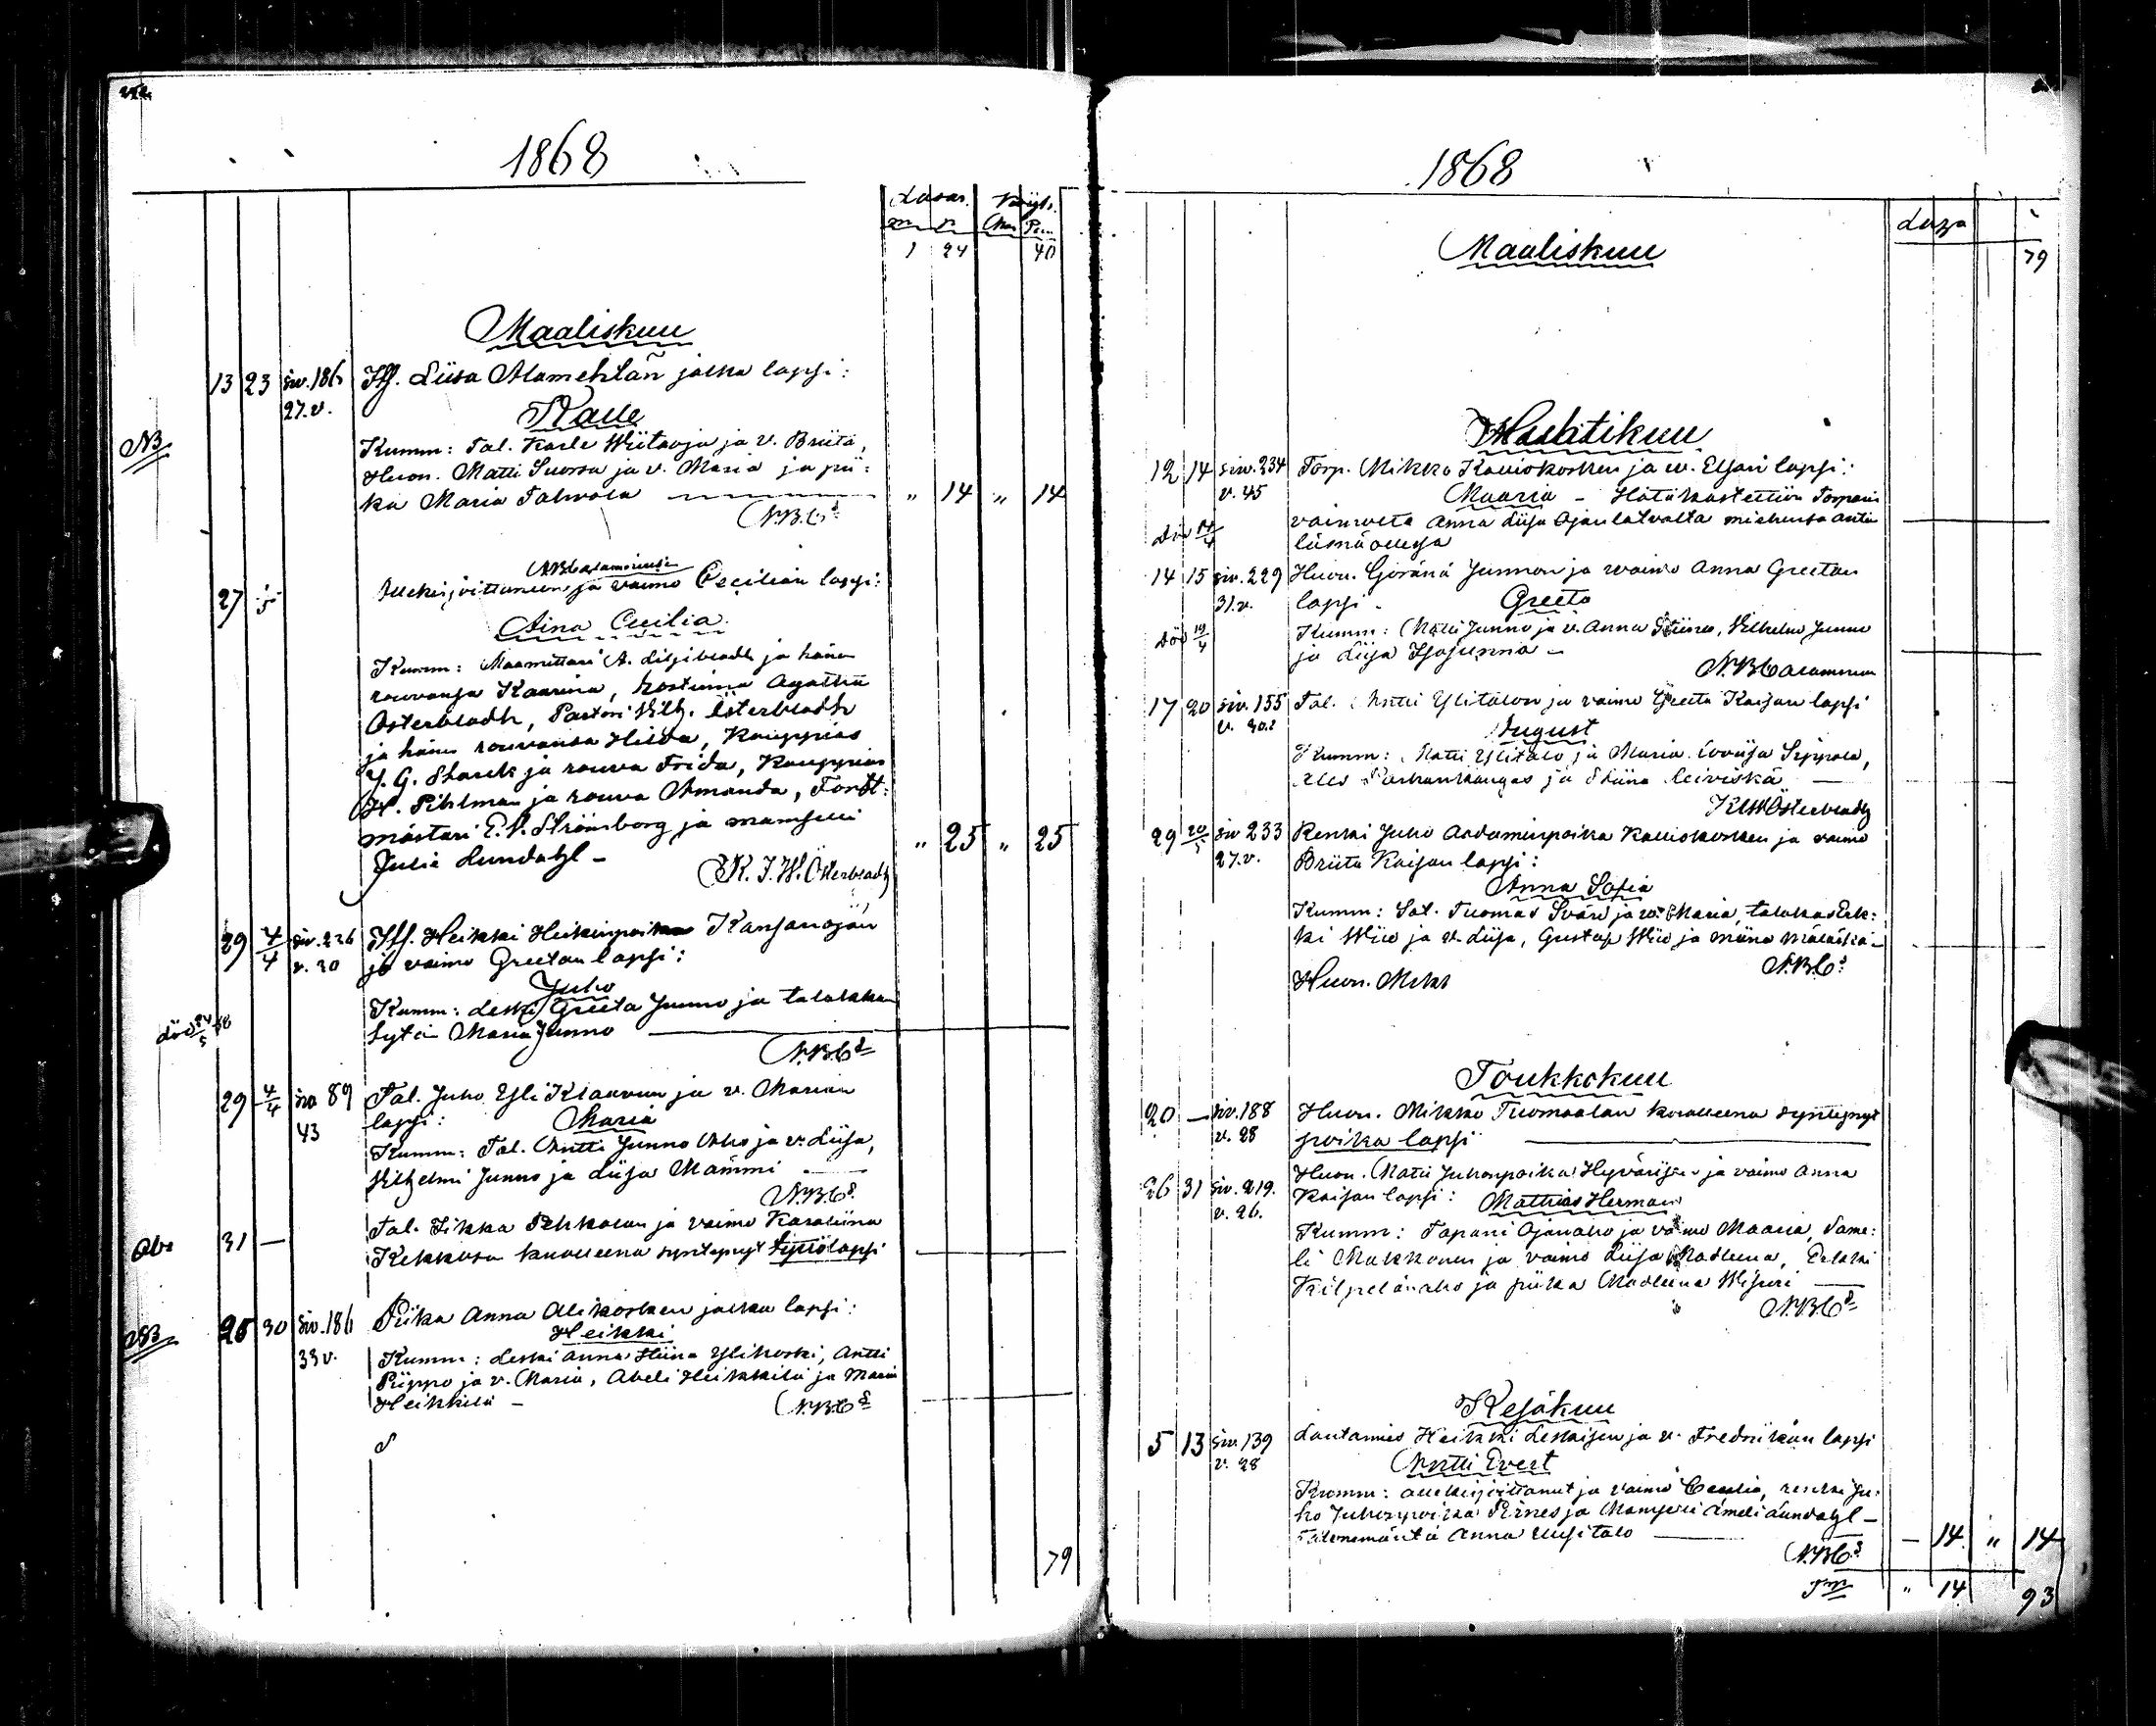 1868
Lasar. Köyh.
m p Mar Pen
1 24 40
Maaliskuu
13 23 siv. 186 Itf. Liisa Alamehtän jalka lapsi:
27. v.
Kalle
NB Kumm: Tal. Karle Wiitaoja ja v. Briita,
Huon. Matti Suorsa ja v. Maria ja pii:
ka Maria Tahvola " 14 " 14
N.B.C.
27 5 Allekirjoittaneen ja vaimo Cecilian lapsi:
Aina Cecilia
Kumm: Maamittari A. Liljebladh ja hänen
rouvansa Kaarina, Agatha
Österbladh, Pastori Vilh. Österbladh
ja hänen rouvansa Hilda, Kauppias
J. G. Starck ja rouva Frida, Kauppias
H. Pihlman ja rouva Amanda, Forst:
mästari E. V. Strömsborg ja mamselli
Julia Lundahl - " 25 " 25
K. F. W. Österbladh
29 4/4 siv. 226 Itf. Heikki Heikinpoika Kansanojan
v. 30 ja vaimo Greetan lapsi:
Juho
Kumm: Leski Greeta Junno ja talokkan
Död 24/5 68 tytär Maria Junno
N.B.C.
29 4/4 siv 89 Tal. Juho Yli Klaavun ja v. Marian
43 lapsi: Maria
Kumm: Tal. Antti Junno Aho ja v. Liisa,
Vilhelmi Junno ja Liisa Mämmi
N.B.C.
31 — Tal. Iikka Pekkalan ja vaimo Karoliina
Kekkosen kuolleena syntynyt tyttölapsi
NB 25 30 siv. 186 Piika Anna Alikosken jalka lapsi:
Heikki
33 v. Kumm: Leski Anna Stiina Ylikoski, Antti
Piippo ja v. Maria, Abeli Heikkilä ja Maria
Heikkilä - N.B.C.
79
1868
79
Maaliskuu
Huhtikuu
12 14 siv. 234 Torp. Mikko Kalliokosken ja w. Elsan lapsi:
v. 45 Maaria - Hätäkastettiin Torparin
Död 14/4 vaimolta Anna Liisa Ojanlatvalta miehensä Antin
läsnä ollessa
14 15 siv. 229 Huon. Göränä Junnon ja waimo Anna Greetan
31. v. lapsi - Greeta
Död 19/4 Kumm: Matti Junno ja v. Anna Stiina, Vilhelmi Junno
ja Liisa -
N.B. Calamnius
17 20 siv. 155 Tal. Antti Ylitalon ja vaimo Greeta Kaisan lapsi
August
Kumm: Matti Ylitalo ja Maria Lovisa Seppälä,
ja Stiina Leiviskä
K F W Österbladh
29 20/5 siv 233 Renki Juho Aadaminpoika Kalliokosken ja vaimo
27. v. Briita Kaisan lapsi:
Anna Sofia
Kumm: Sot. Tuomas Svärd ja w. Maria, talokas Erk:
ki Wiio ja v. Liisa, Gustaf Wiio ja
N.B.C.
Huon. Mikk
Toukkokuu
20 — siv. 188 Huon. Mikko Tuomaalan kuolleena syntynyt
v. 28 poika lapsi
26 31 siv. 219. Huon. Matti Juhonpoika Hyvärisen ja vaimo Anna
v. 26. Kaisan lapsi: Mathias Herman
Kumm: Tapani Ojanaho ja vaimo Maaria, Same:
li Makkonen ja vaimo Liisa Madleena, Erkki
Kilpelänaho ja piika Madleena Wisuri
N.B.C.
Kesäkuu
5 13 siv. 139 Lautamies Heikki Leskisen ja v. Fredrikan lapsi
v. 28 Antti Evert
Kumm: allekirjoittanut ja vaimo Cecilia, renki Ju:
ho Juhonpoika Kirnes ja Mamselli Ameli Lundahl -
Anna Uusitalo — 14 " 14
N.B.C.
" 14 93